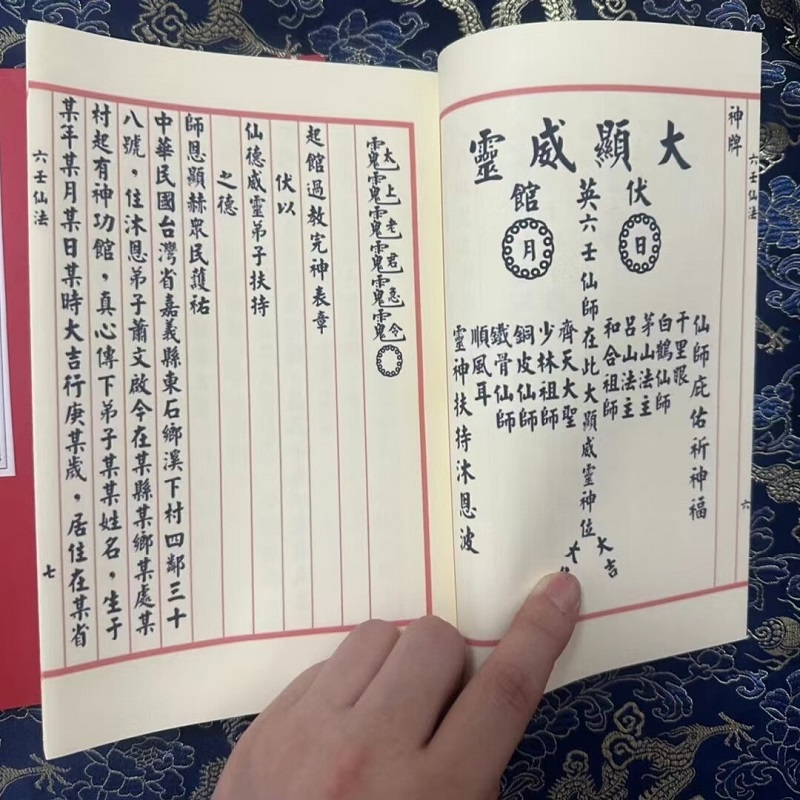 六壬仙法
六
神牌
大顯威靈
伏
日
仙師庇佑祈神福
千里眼
白鶴仙師
茅山法主
呂山法主
和合祖師
英六壬仙師在此大顯威靈神位
館
月
齊天大聖
少林祖師
銅皮仙師
鐵骨仙師
順風耳
靈神扶持沐恩波
大吉
大
太上老君急令
起館過教完神表章
伏以
仙德威靈弟子扶持
之德
師恩顯赫眾民護祐
中華民國台灣省嘉義縣東石鄉溪下村四鄰三十
八號，住沐恩弟子蕭文啟今在某縣某鄉某處某
村起有神功館，真心傳下弟子某某姓名，生于
某年某月某日某時大吉行庚某歲，居住在某省
六壬仙法
七